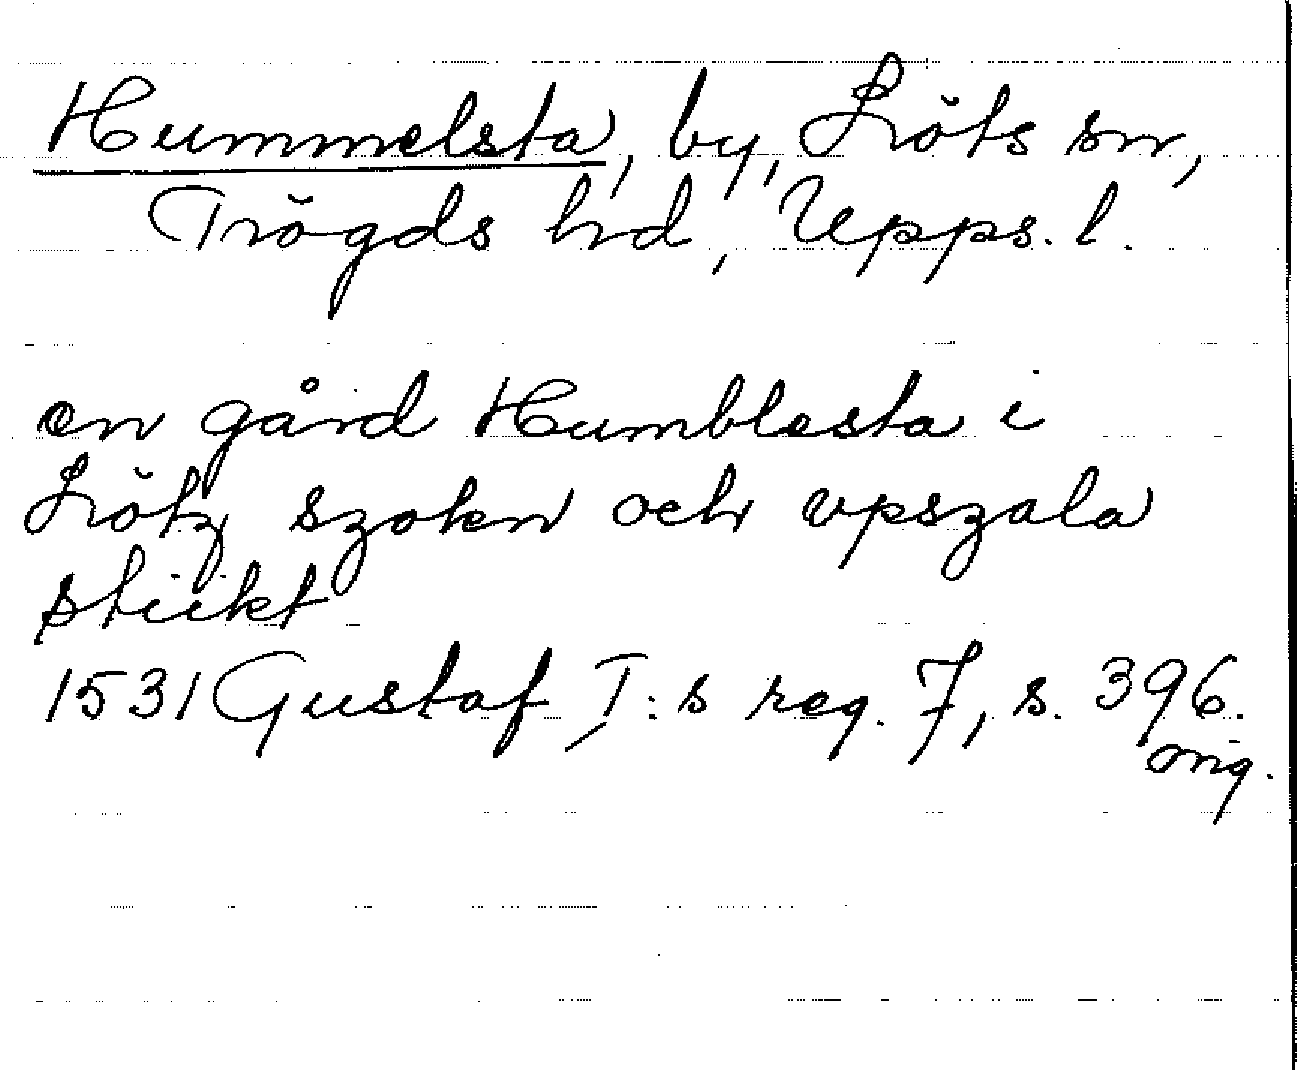 Hummelsta, by, Löts sn,
Trögds hd, Upps. l.
en gård Humblesta i
Lötz szokn och vpszala
sticktt
1531 Gustaf I:s reg. 7, s. 396.
orig.